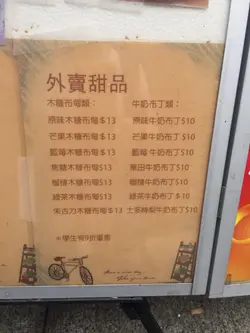 外賣甜品
木糠布甸類： 牛奶布丁類：
原味木糠布甸$13 原味牛奶布丁$10
芒果木糠布甸$13 芒果牛奶布丁$10
藍莓木糠布甸$13 藍莓牛奶布丁$10
焦糖木糠布甸$13 蔥田牛奶布丁$10
榴槤木糠布甸$13 榴槤牛奶布丁$10
綠茶木糠布甸$13 綠茶牛奶布丁$10
朱古力木糠布甸$13 士多啤梨牛奶布丁$10
*學生預9折優惠